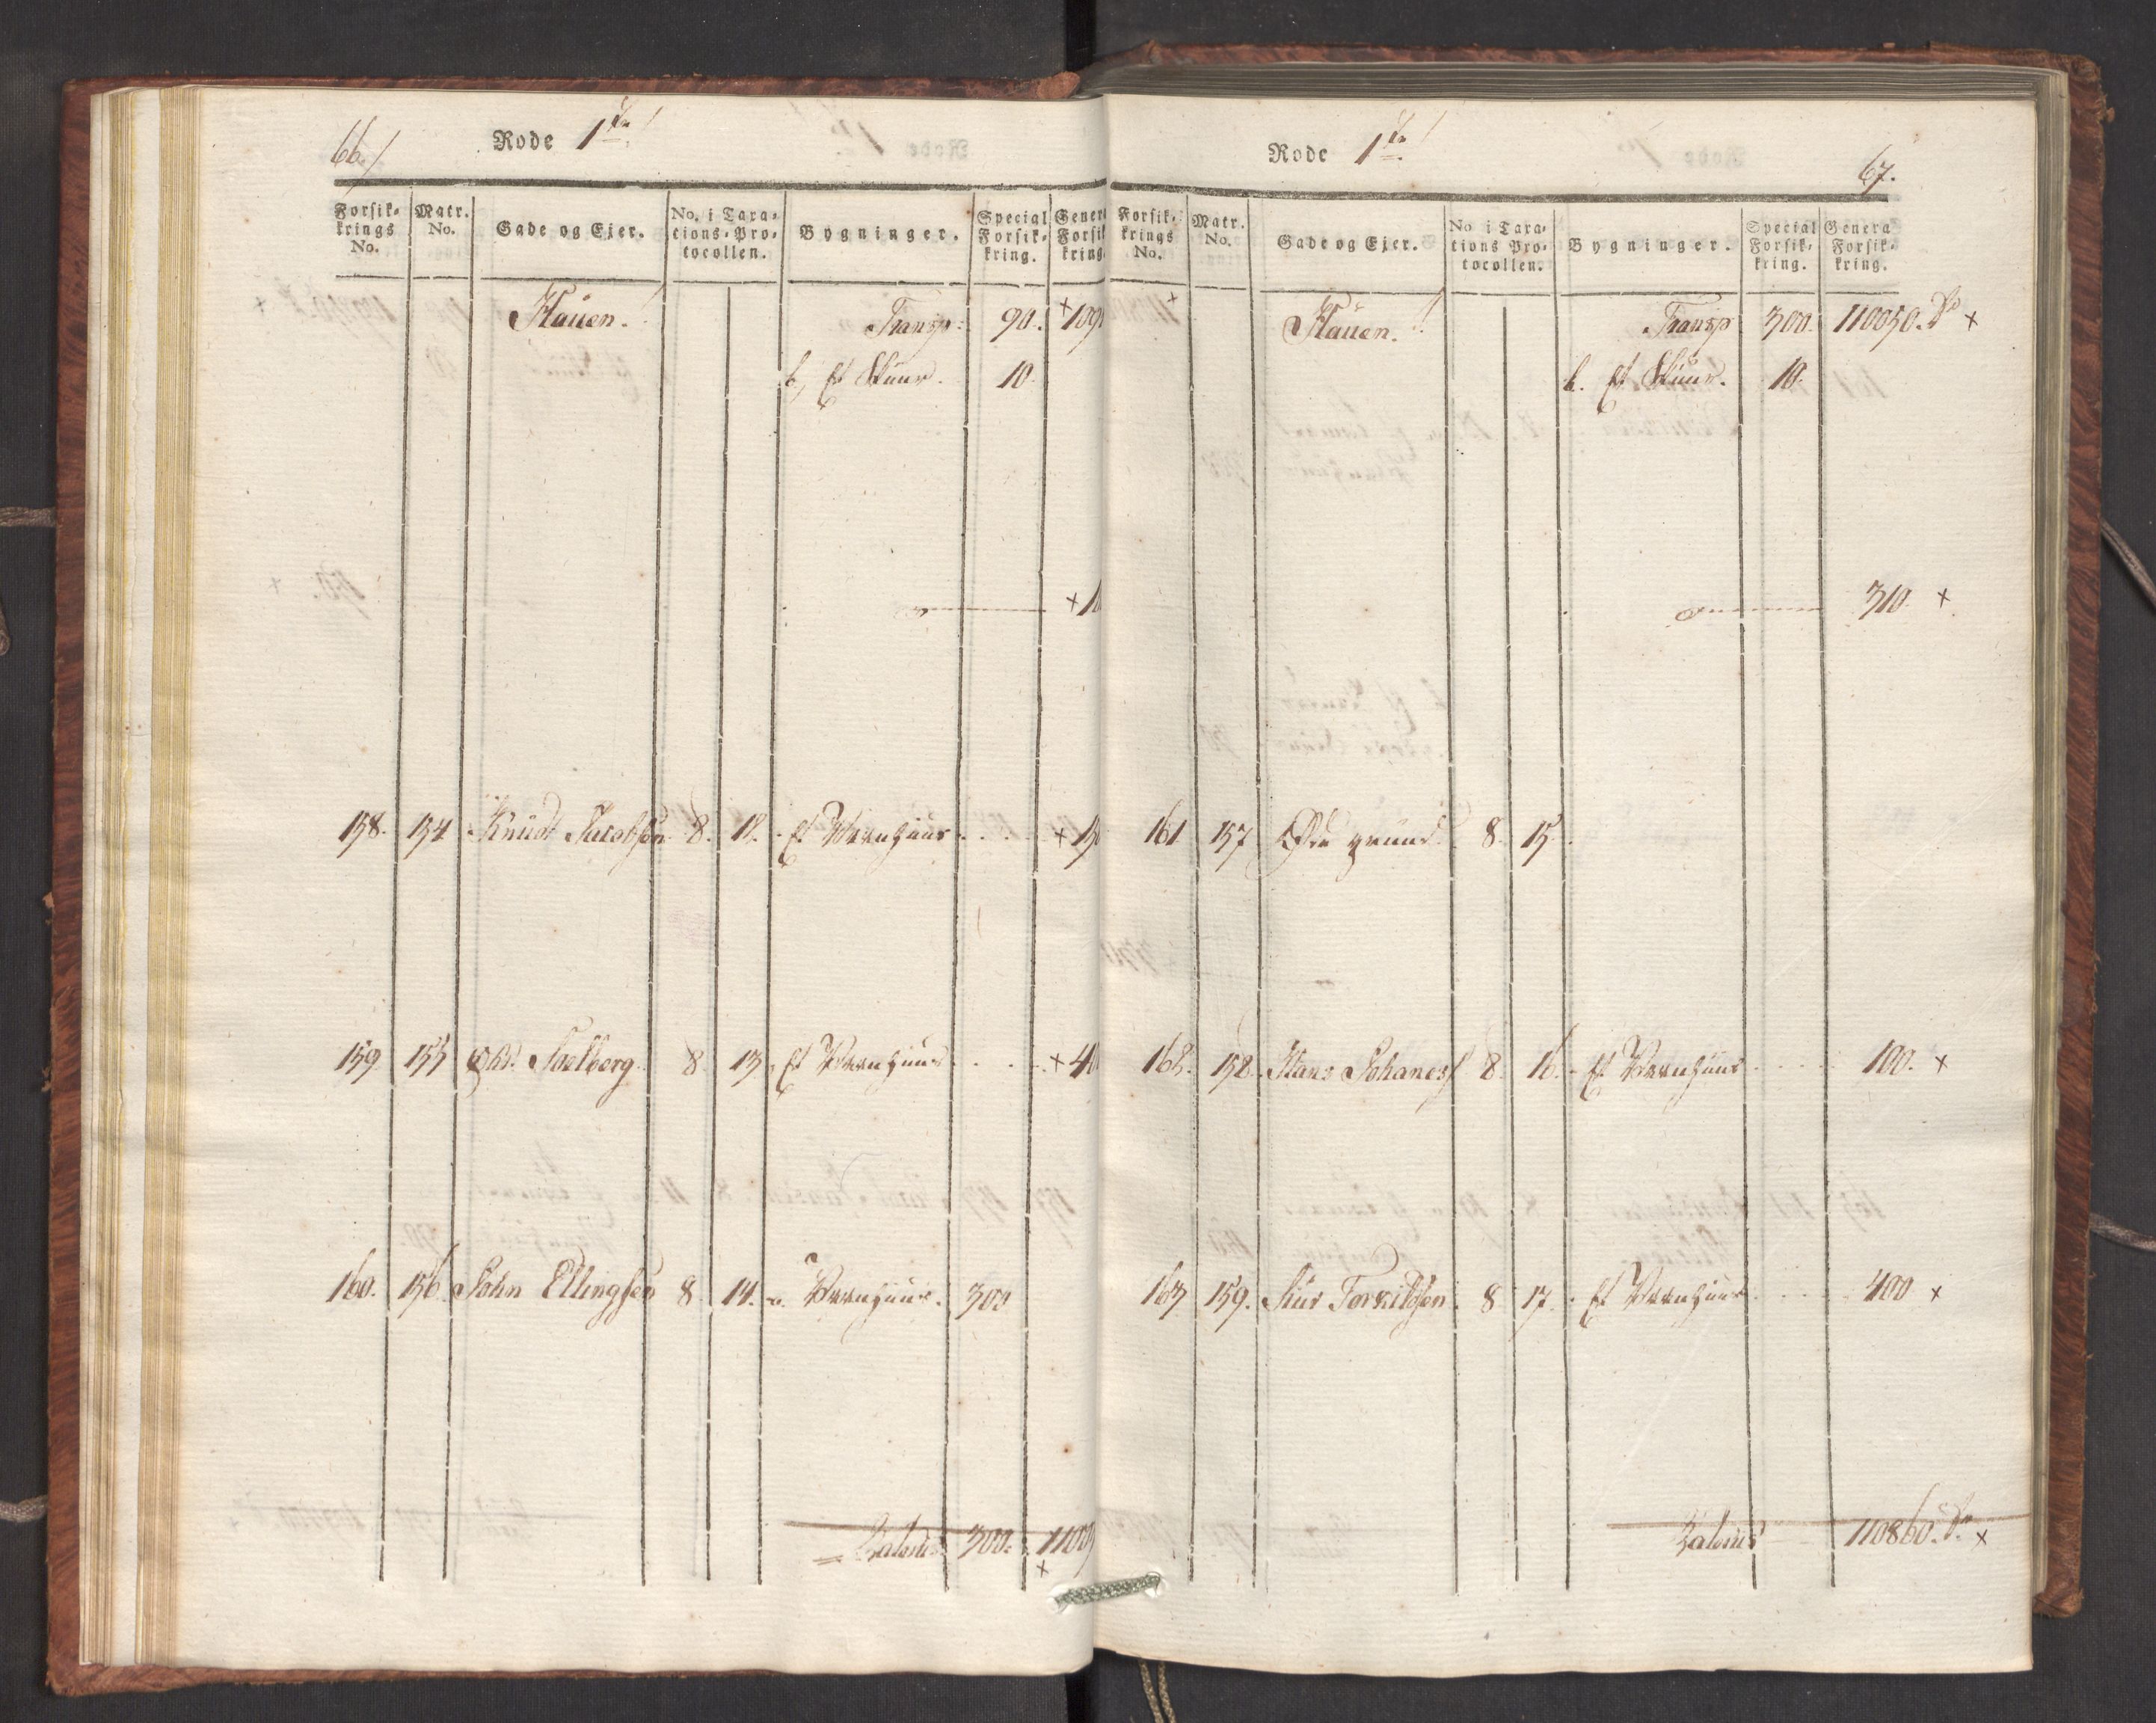 66./
Rode 1ste
Forsik-
krings
No.
Matr.
No.
Gade og Ejer.
No. i Taxa-
tions-Pro-
tocollen.
Bygninger.
Special
Forsik-
kring.
Gener
Forsik
kring
Hauen.
Transp: 90.
b, Et Skuur. 10.
158. 154 Knudt Jacobsen 8. 12. Et Vaanhuus
159 155 Chr. Soelberg 8. 13. Et Vaanhuus
160. 156. John Ellingsen 8 14. a. Vaanhuus. 300
Lateris 300.
Rode 1ste
67.
Forsik-
krings
No.
Matr.
No.
Gade og Ejer.
No i Taxa-
tions Pro-
tocollen.
Bygninger.
Special
Forsik-
kring.
Genera
Forsik-
kring.
Hauen.
Transp 300. 110050. Dr x
b. Et Skuur. 10.
310. x
161 157 Øde grund 8. 15.
162. 158. Hans Johanes 8. 16. Et Vaanhuus 100. x
163 159. Siur Torkildsen. 8 17. Et Vaanhuus 400 x
Lateris 110860. Dr x